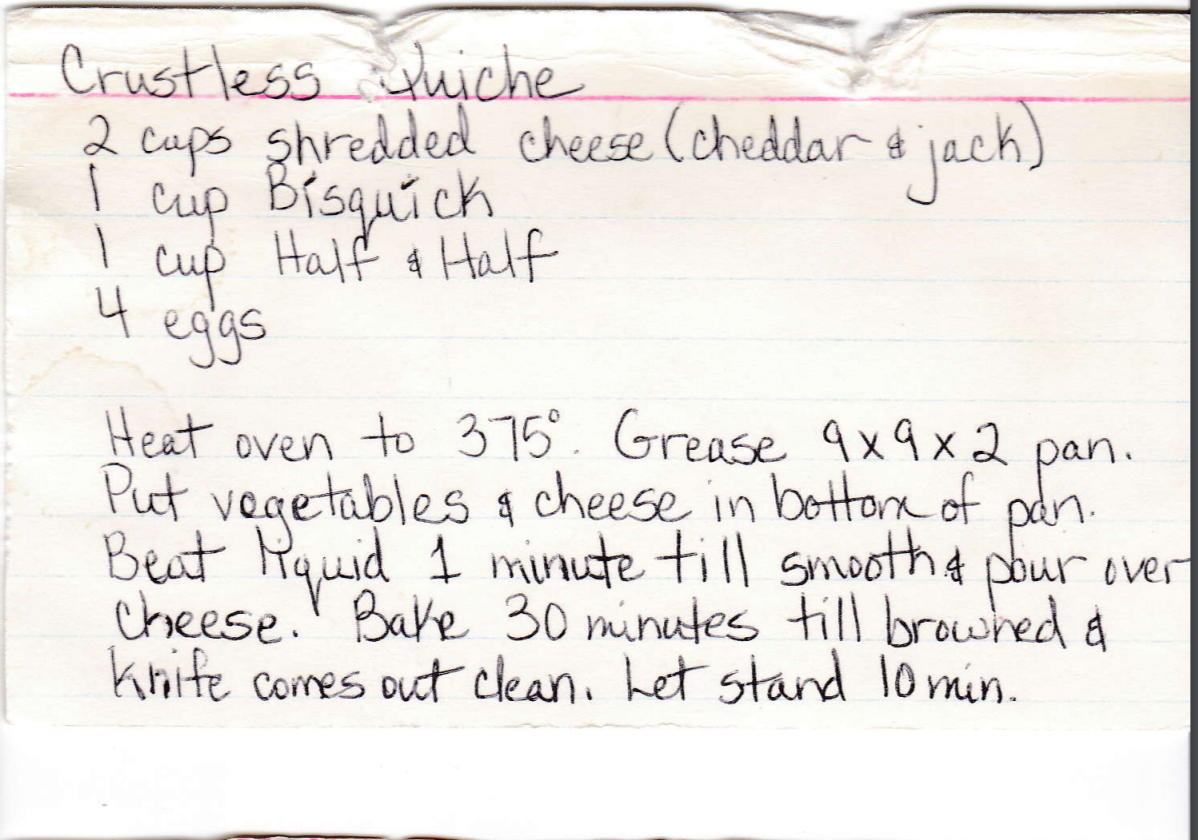 Crustless Quiche
2 cups shredded cheese (cheddar & jack)
1 cup Bisquick
1 cup Half & Half
4 eggs
Heat oven to 375°. Grease 9x9x2 pan.
Put vegetables & cheese in bottom of pan.
Beat liquid 1 minute till smooth & pour over
cheese. Bake 30 minutes till browned &
knife comes out clean. Let stand 10 min.